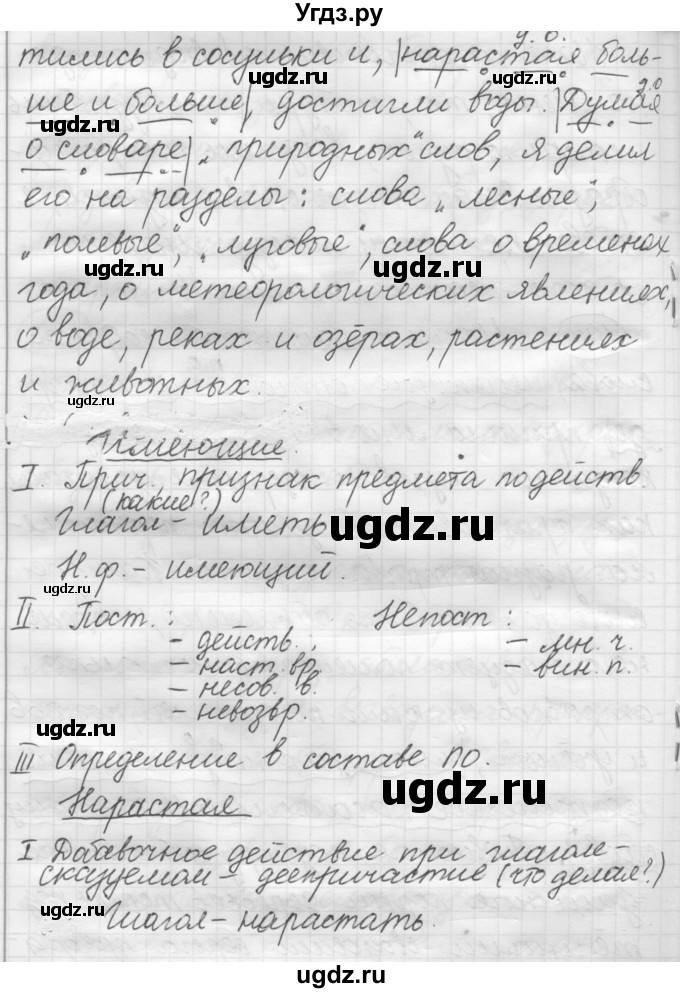 Угдз.ру
д.о.
тились в сосульки и, |нарастая боль-
ugdz.ru ugdz.ru
ше и больше|, достигли воды. |Думая
ugdz.ru д.о
о словаре| „природных“ слов, я делил
ugdz.ru
его на разделы: слова „лесные“,
„полевые“, „луговые“, слова о временах
ugdz.ru ugdz.ru
года, о метеорологических явлениях,
о воде, реках и озёрах, растениях
и животных.
ugdz.ru
Имеющие.
I. Прич., признак предмета по действ.
(какие?)
Глагол - иметь
ugdz.ru
Н.ф. - имеющий.
ugdz.ru
II. Пост.: Непост:
- действ., - мн. ч.
- наст. вр. - вин. п.
- несов. в.
- невозвр.
ugdz.ru ugdz.ru
III Определение в составе ПО.
ugdz.ru
Нарастая
I Дабавочное действие при глаголе-
сказуемом - деепричастие (что делая?)
ugdz.ru ugdz.ru
Глагол - нарастать.
ugdz.ru